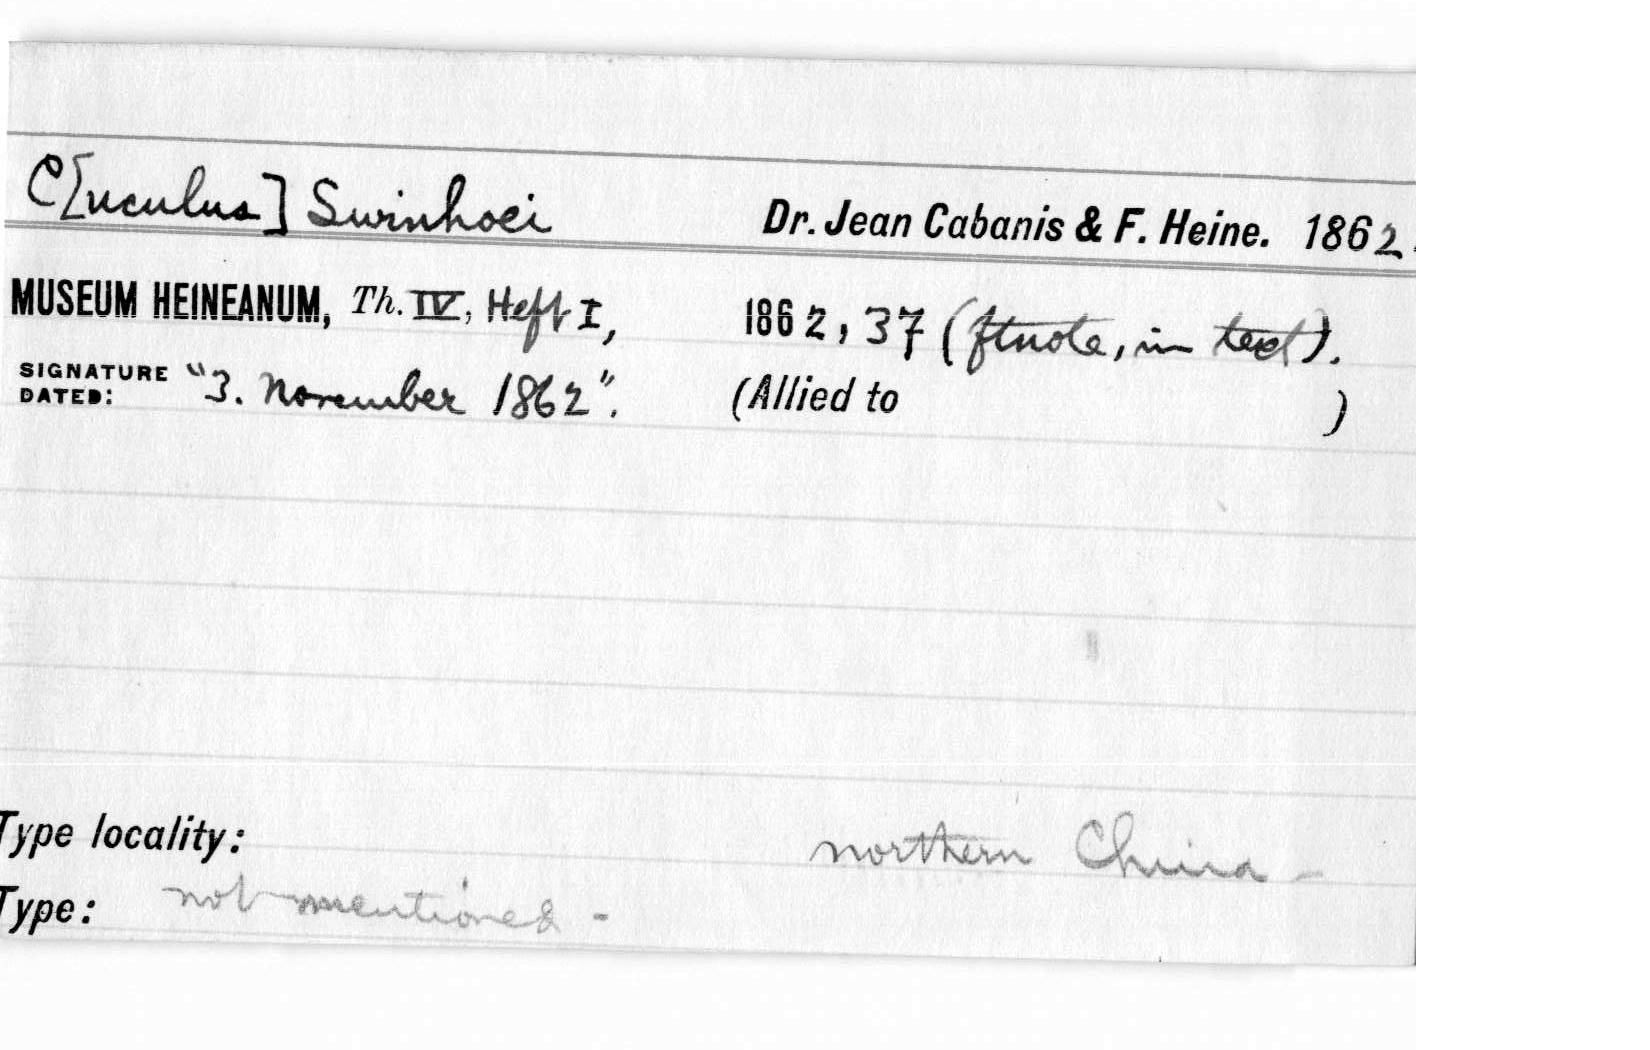 C[uculus] Swinhoei Dr. Jean Cabanis & F. Heine. 1862.
MUSEUM HEINEANUM, Th. IV, Heft I, 1862, 37 (ftnote, in text).
SIGNATURE DATED: "3. November 1862". (Allied to )
Type locality: northern China -
Type: not mentioned -